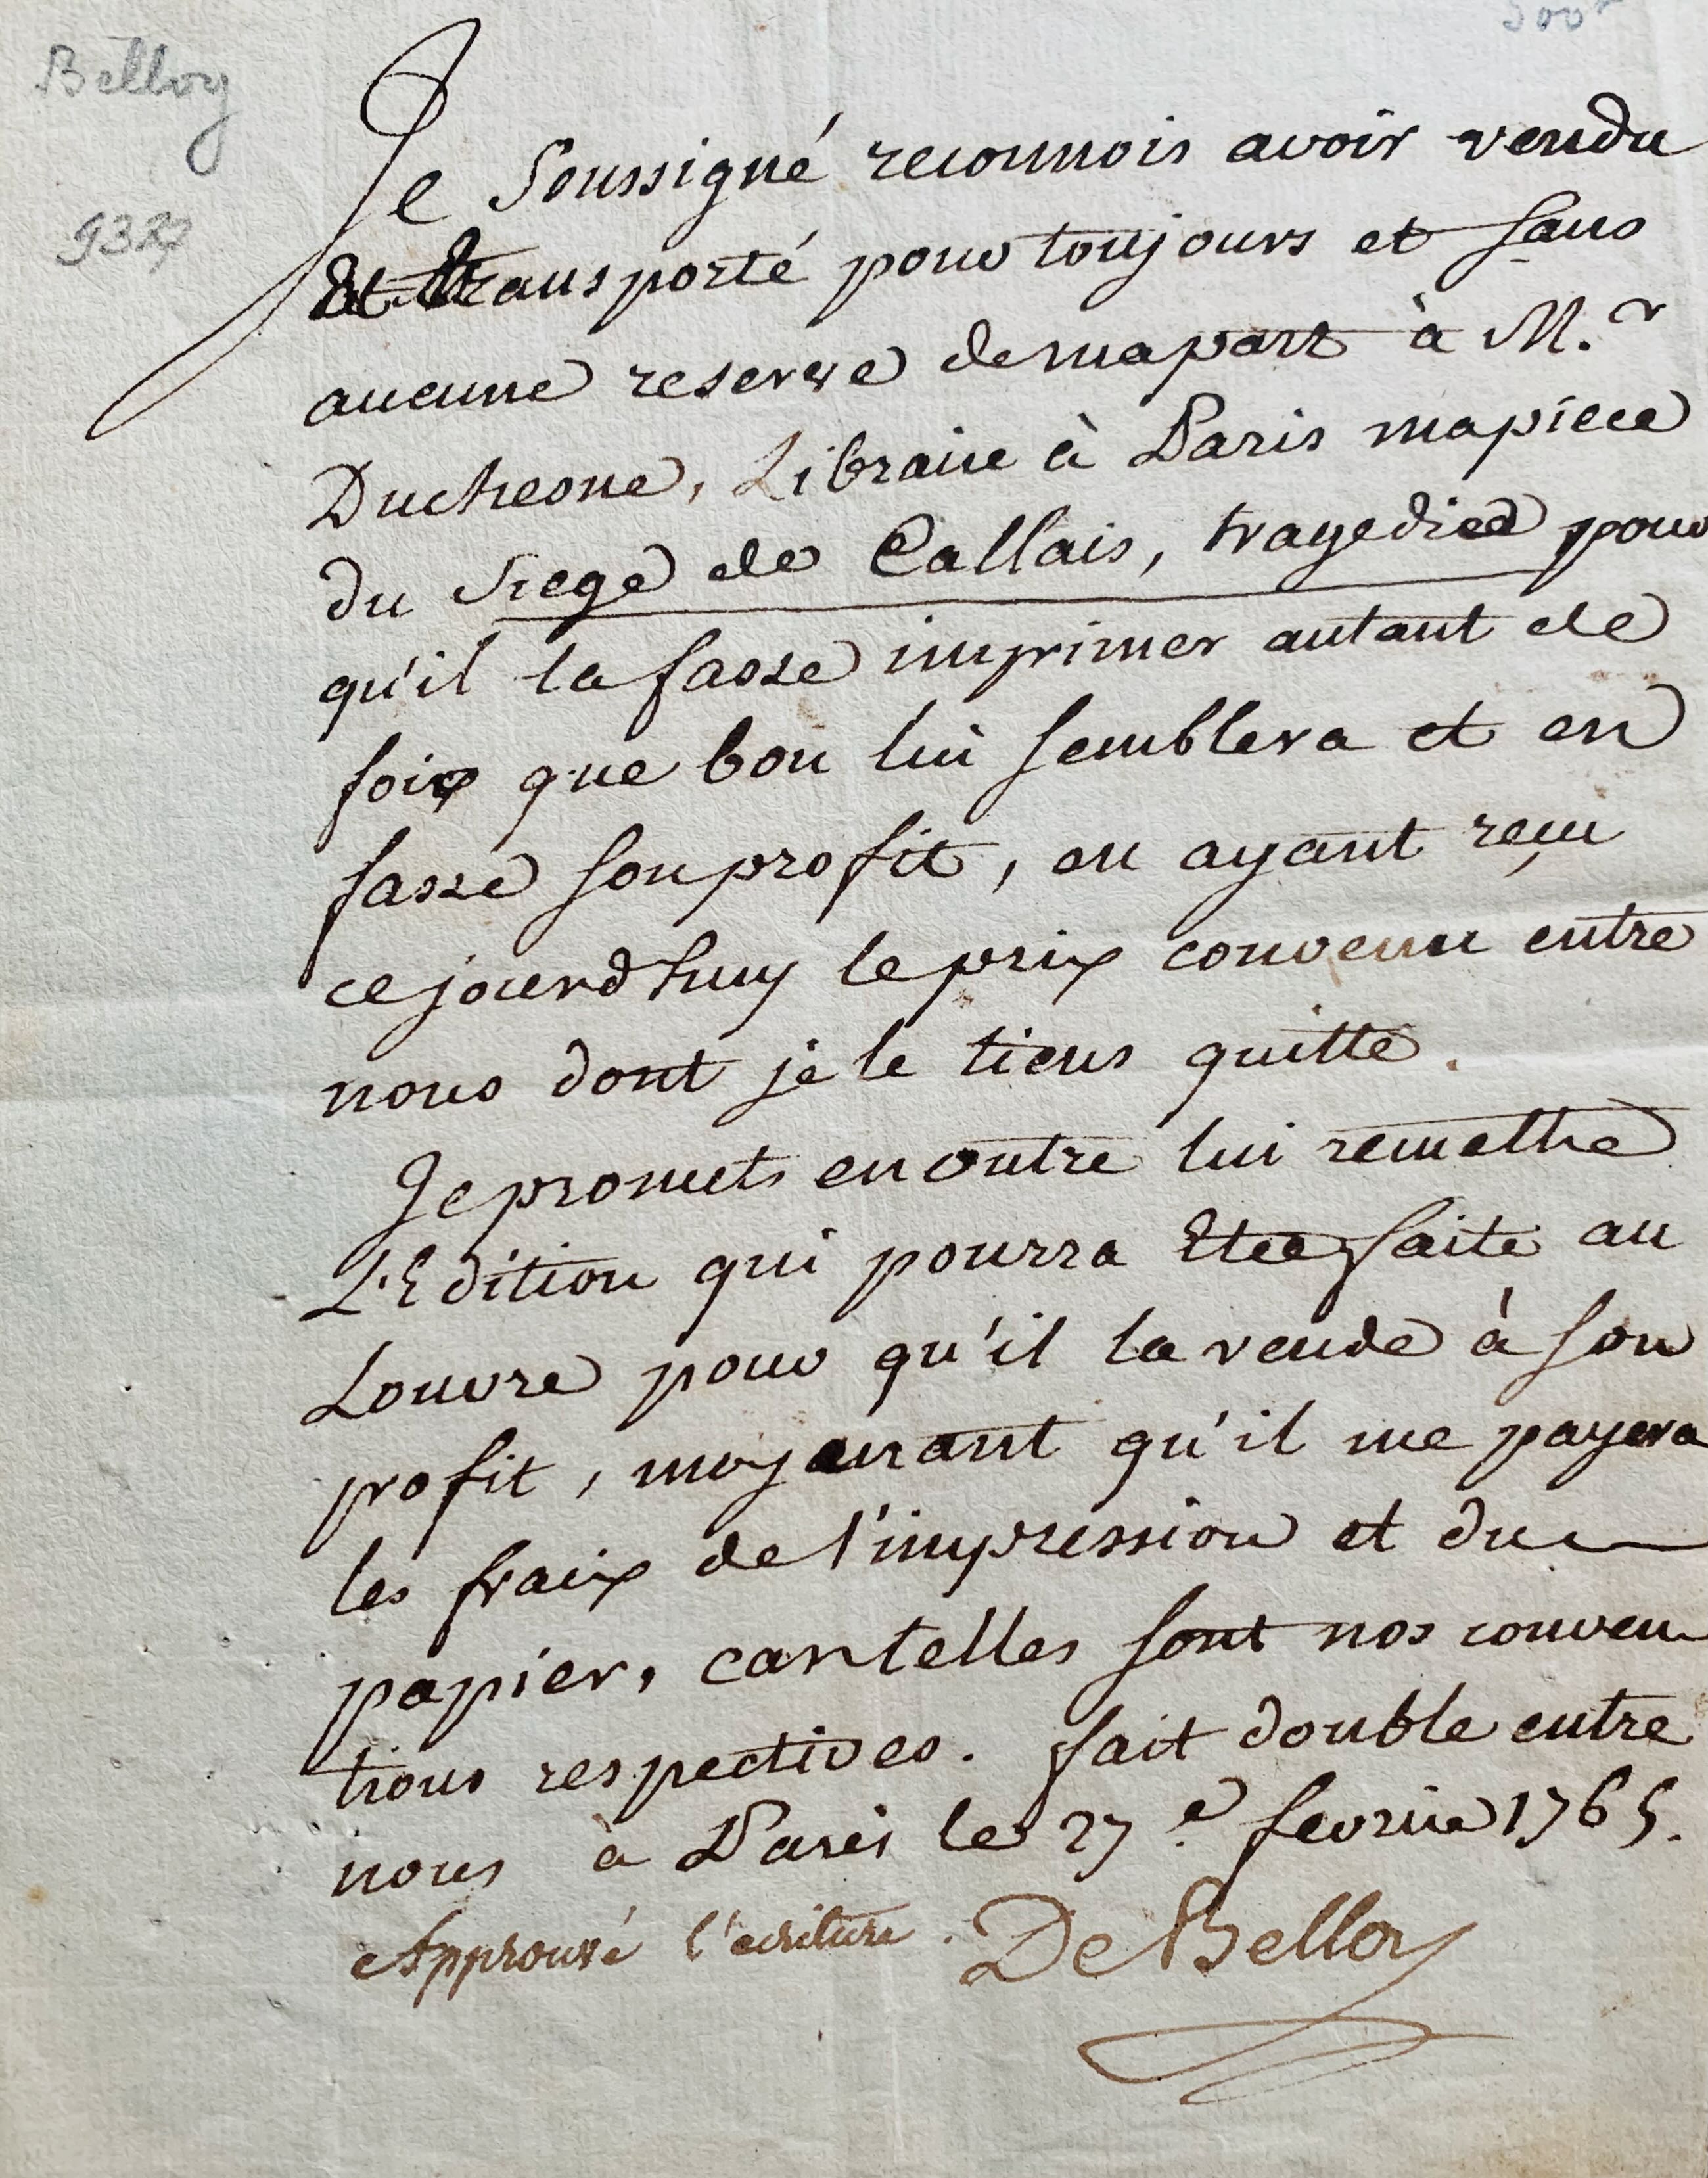 Belloy
Je soussigné reconnois avoir vendu
Et transporté pour toujours et sans
aucune reserve de ma part à M.r
Duchesne, Libraire à Paris ma pièce
du Siege de Callais, tragedie pour
qu'il la fasse imprimer autant de
foix que bon lui semblera et en
fasse son profit, en ayant reçu
ce jourd'huy le prix convenu entre
nous dont je le tiens quitte.
Je promets en outre lui remettre
L'Edition qui pourra Etre faite au
Louvre pour qu'il la vende à son
profit, moyenant qu'il me payera
les fraix de l'impression et du
papier, car telles sont nos conven
tions respectives. fait double entre
nous à Paris le 27.e fevrier 1765.
Approuvé l'ecriture. De Belloy